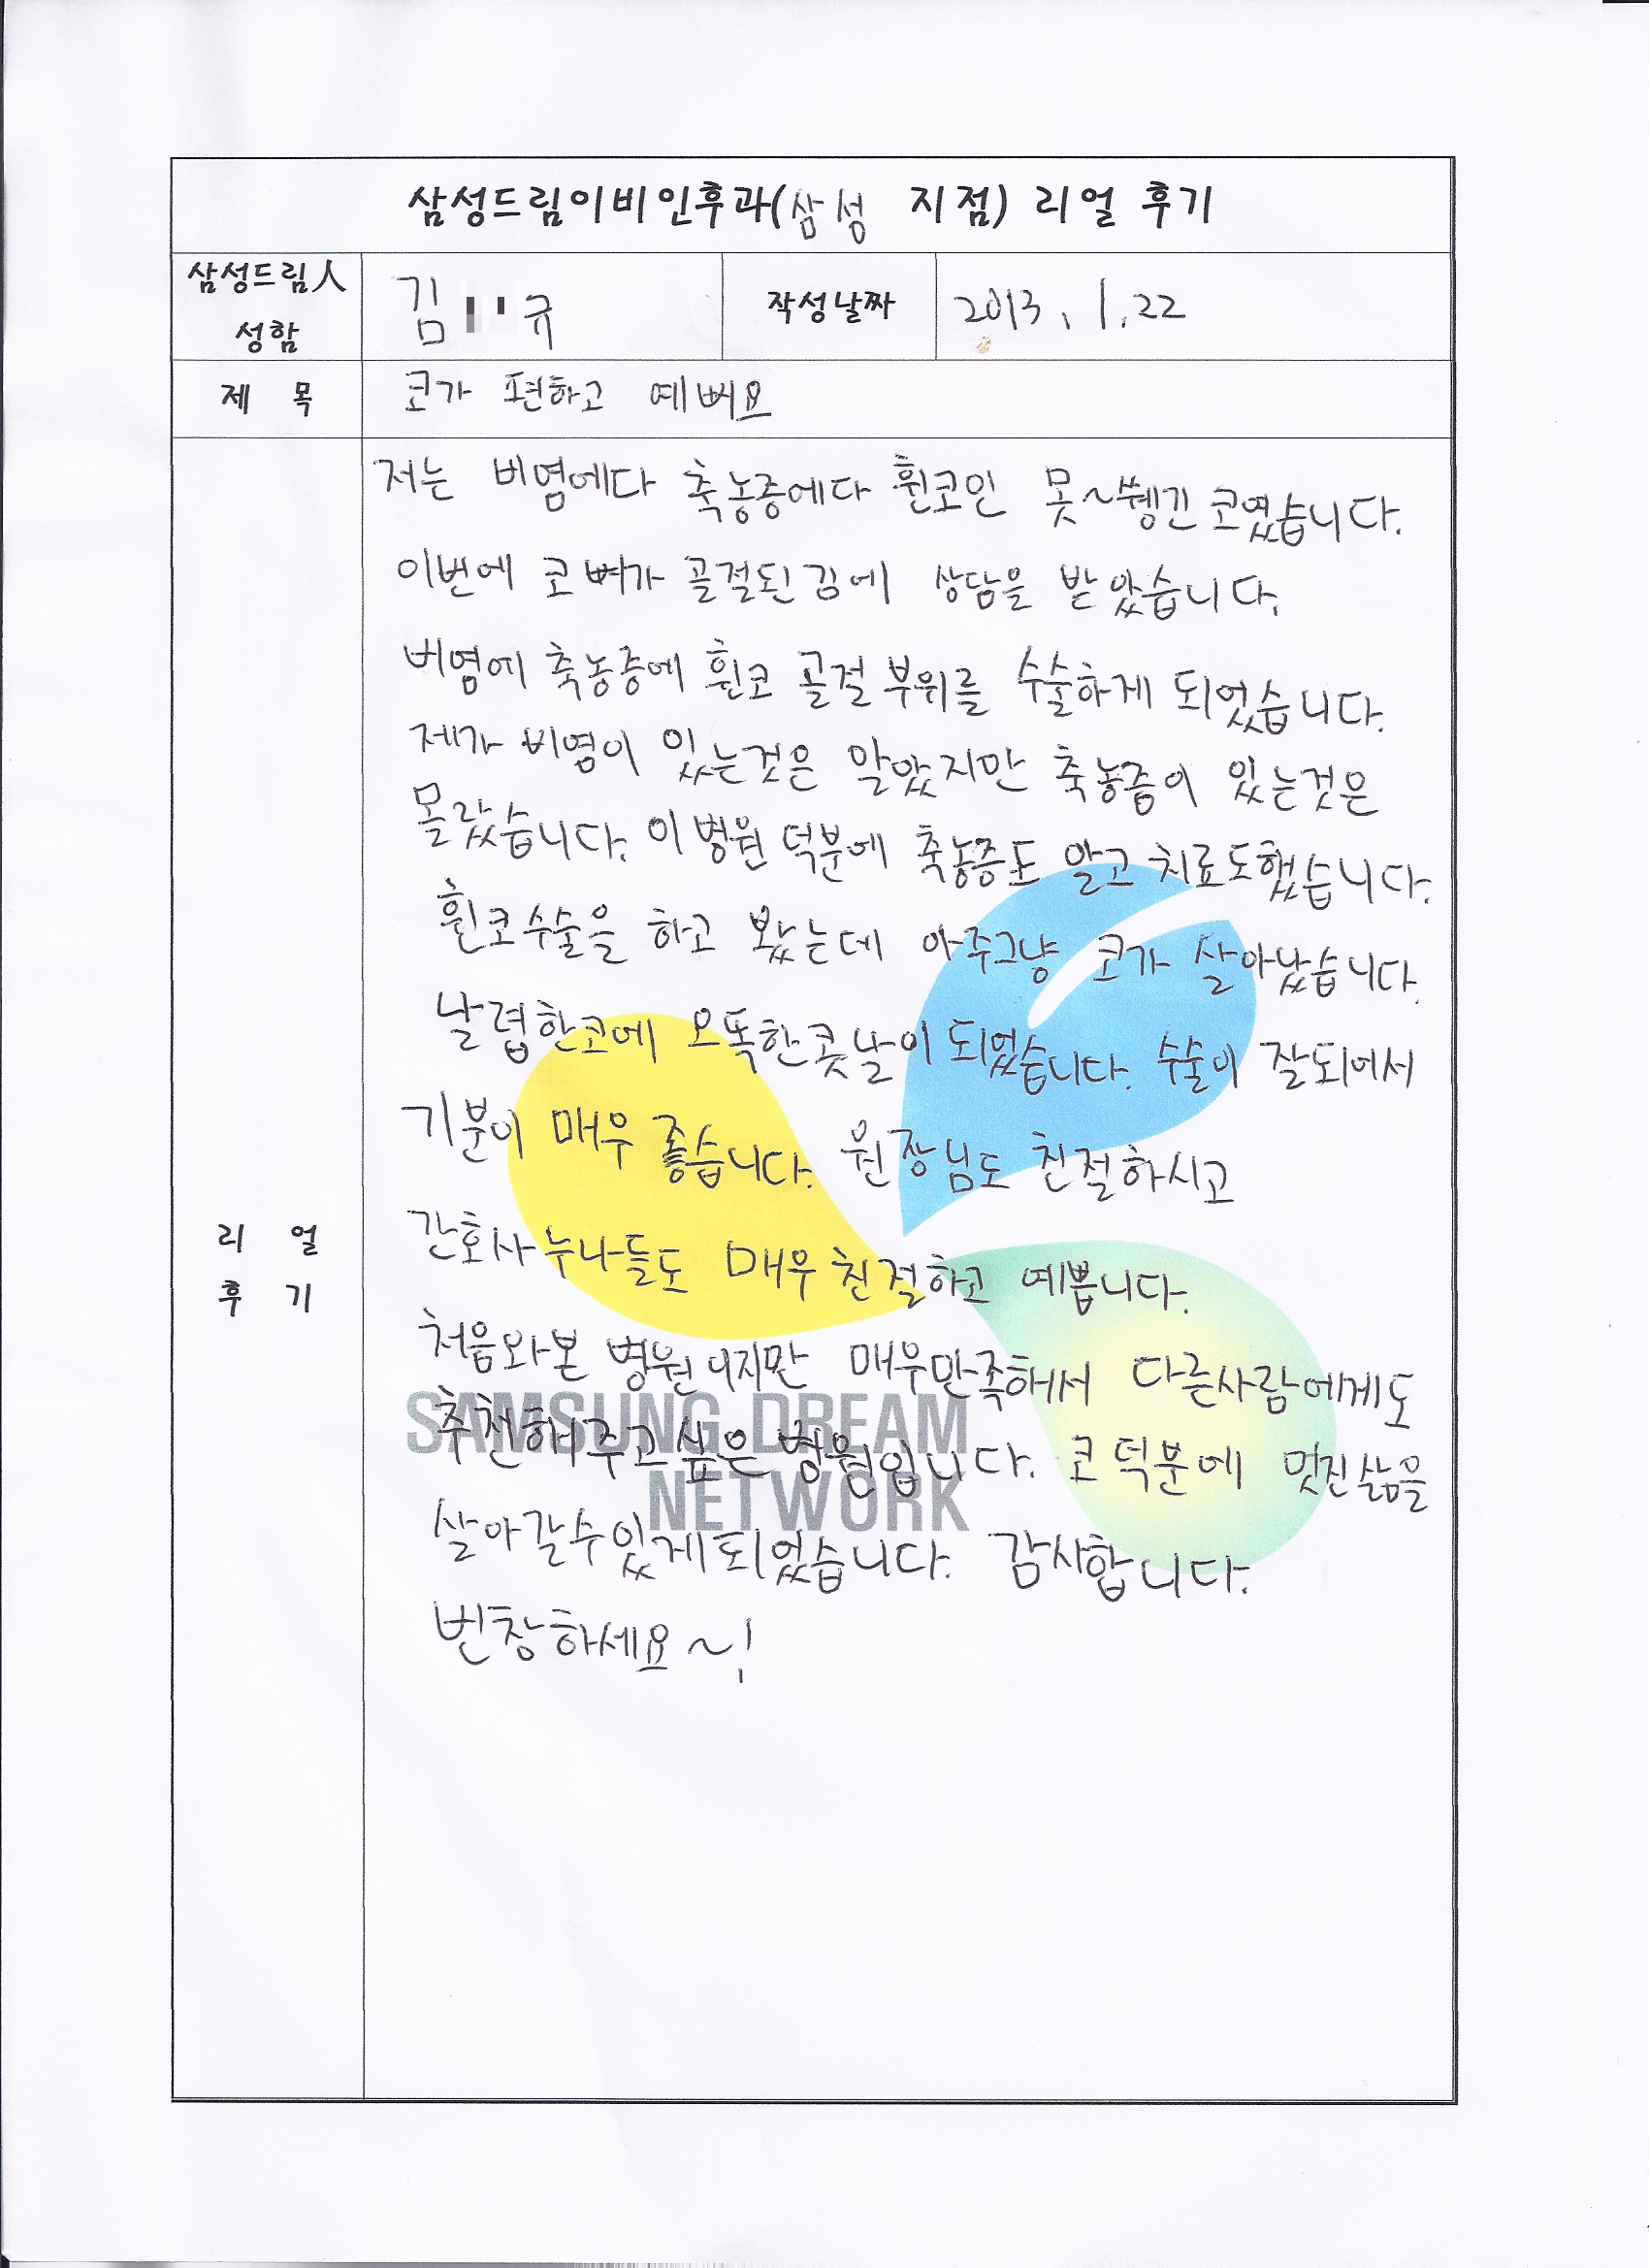 삼성드림이비인후과(삼성 지점) 리얼 후기
삼성드림人 성함 김 규 작성날짜 2013. 1. 22
제 목 코가 편하고 예뻐요
리 얼 후 기
저는 비염에다 축농증에다 휜코인 못~쉥긴 코였습니다.
이번에 코뼈가 골절된김에 상담을 받았습니다.
비염에 축농증에 휜코 골절 부위를 수술하게 되었습니다.
제가 비염이 있는것은 알았지만 축농증이 있는것은
몰랐습니다. 이 병원 덕분에 축농증도 알고 치료도했습니다.
휜코수술을 하고 봤는데 아주그냥 코가 살아났습니다.
날렵한코에 오똑한콧날이 되었습니다. 수술이 잘되어서
기분이 매우 좋습니다. 원장님도 친절하시고
간호사 누나들도 매우 친절하고 예쁩니다.
처음와본 병원이지만 매우만족해서 다른사람에게도
추천해주고싶은 병원입니다. 코 덕분에 멋진삶을
살아갈수있게되었습니다. 감사합니다.
번창하세요~!
SAMSUNG DREAM
NETWORK